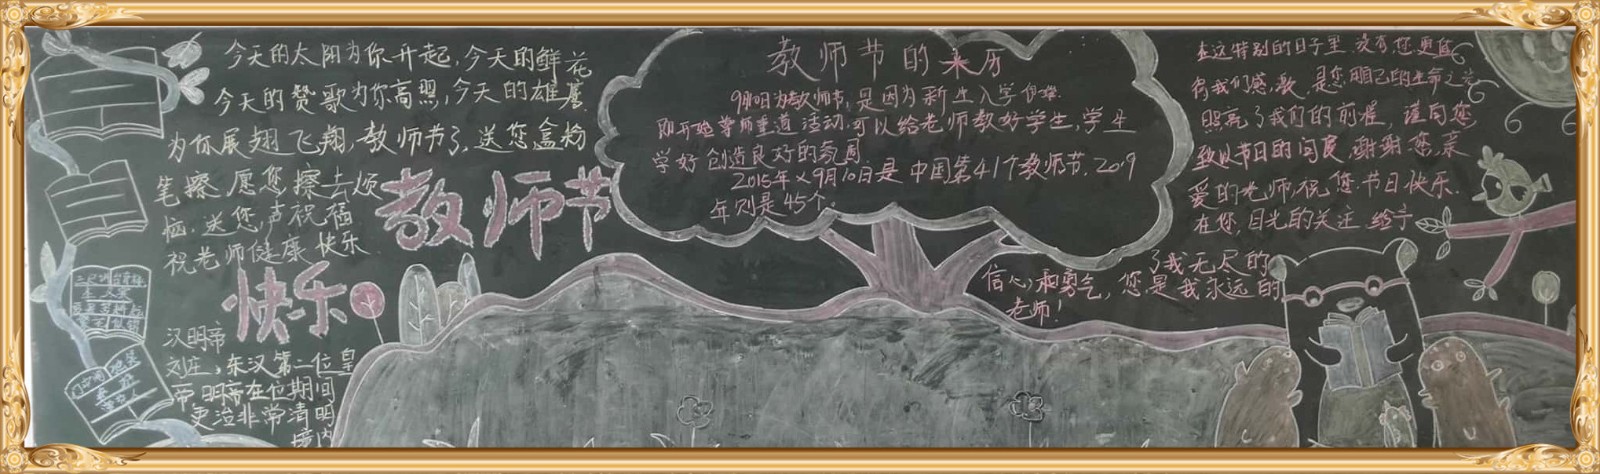 今天的太阳为你升起,今天的鲜花
今天的赞歌为你高照,今天的雄鹰
为你展翅飞翔.教师节了,送您盒粉
笔擦,愿您擦去烦
恼.送您,声祝福
祝老师健康快乐
教师节
快乐
汉明帝
刘庄,东汉第二位皇
帝,明帝在位期间
吏治非常清明
境内
教师节的来历
9月10日为教师节,是因为新生入学伊始.
即开始尊师重道活动.可以给老师教好学生,学生
学好创造良好的氛围
2015年X9月10日是中国第41个教师节.2019
年则是45个.
在这特别的日子里,没有您更值
得我们感,是您用自己的生命之光
照亮了我们的前程,谨向您
致以节日的问候,谢谢您,亲
爱的老师,祝您节日快乐.
在您,目光的关注,给予
了我无尽的
信心,和勇气,您是我永远的
老师!